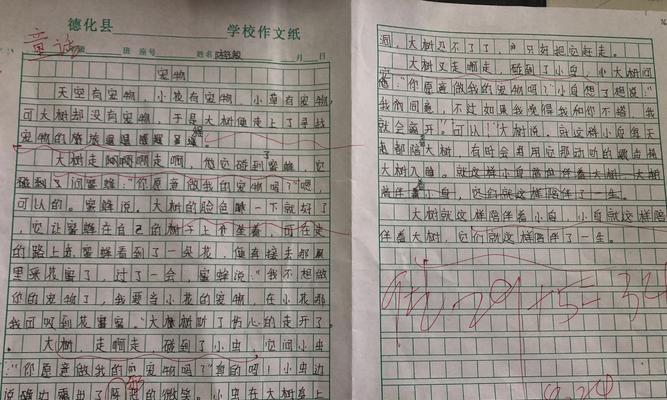 德化县 学校作文纸
童话
班 座号 姓名 月 日
宠物
天空有宠物，小花有宠物，小草有宠物，
可大树却没有宠物，于是大树便走上了寻找
宠物的
大树走啊啊啊走啊，碰到蜜蜂，它
问蜜蜂："你愿意做我的宠物吗？"嗯，
可以的。蜜蜂说。大树的脸色 一下就好了
，它让蜜蜂在自己的树子上 坐着，可在走
的路上 蜜蜂看到了一朵花，便 接去那
里采花蜜了，过了一会，蜜蜂说："我不想做
你的宠物了，我要当小花的宠物，在小花那
我可 吸到花蜜蜜。"大树 了伤心的走开了。
大树 走啊走 碰到了小虫，它问小虫
："你愿意做我的 宠物吗？" 的吗！小虫边
说 边 露出了 的微笑。小虫在大树身上
洞，大树 不了了， 只好把它赶走。
大树又走啊走，碰到了小鸟，小大树问
"你愿意做我的宠物吗？"小鸟想了想说："
我 同意，不过如果我觉得我和你不 ，我
就会离开。"可以！"大树说。就这样小鸟每天
都陪大树，有时会 用它那动听的
大树入睡。就这样小鸟陪伴着大树，大树
陪伴着小鸟，它们就这样陪伴了一生。
大树就这样陪伴着小鸟，小鸟就这样陪
伴着大树，它们就这样陪伴了一生。
29+5=34